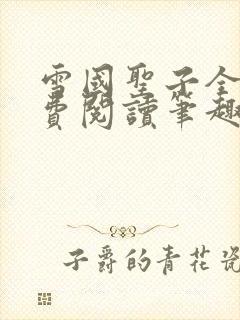 雪國聖子全
費閱讀筆趣
子爵的青花瓷